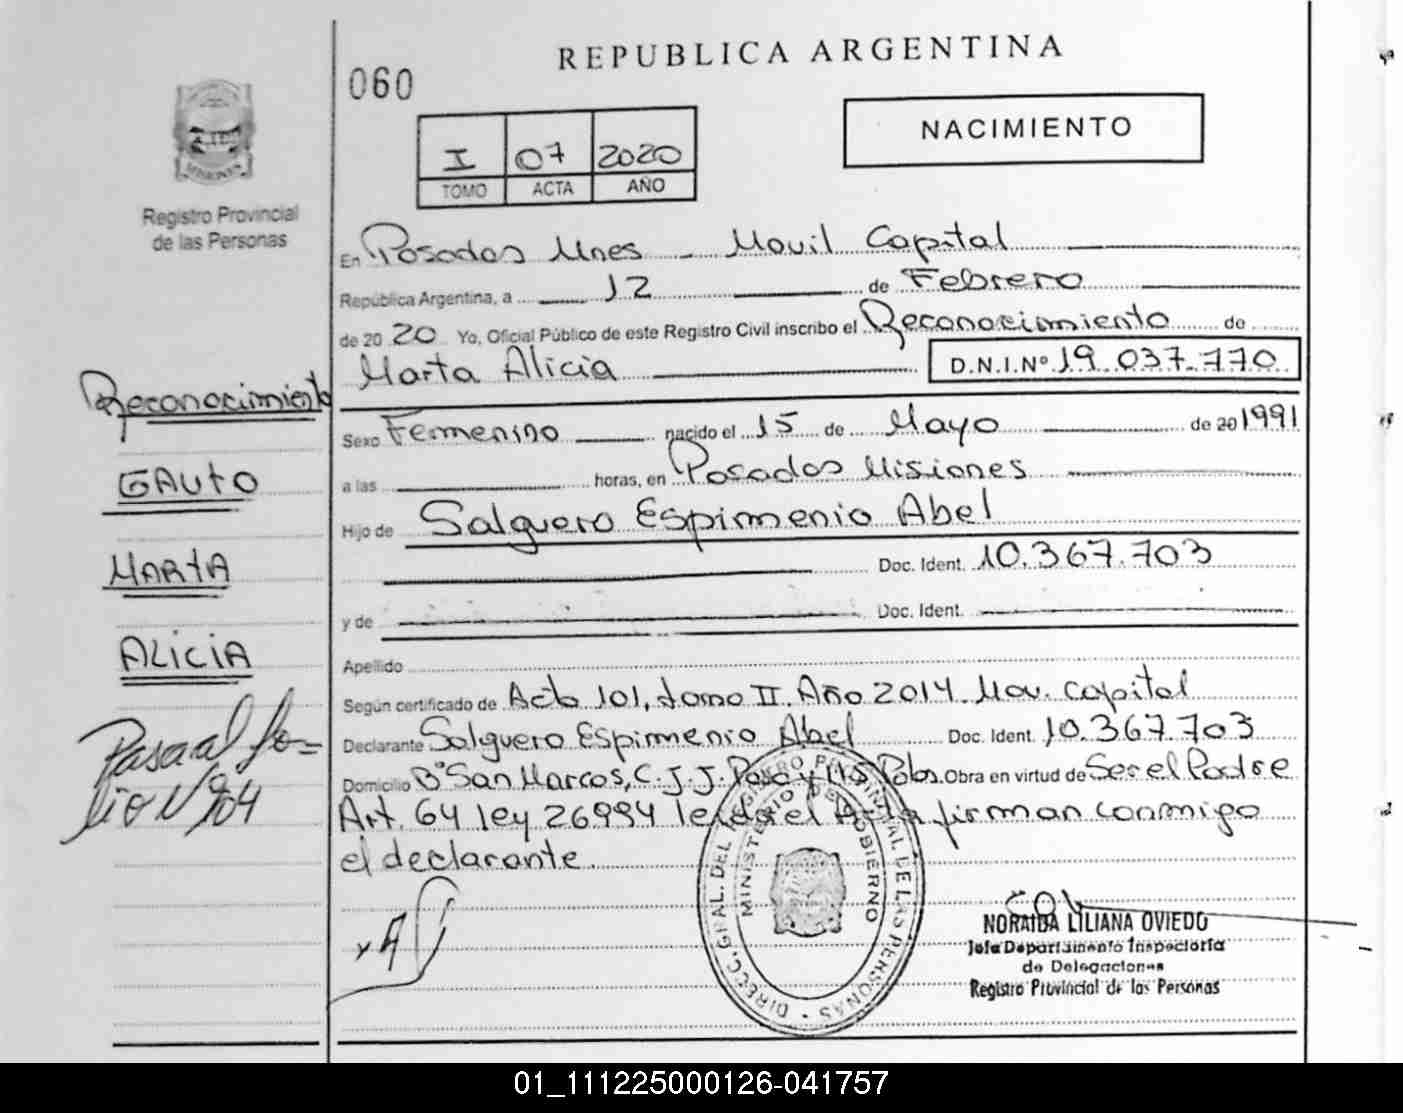 REPUBLICA ARGENTINA
060
NACIMIENTO
I 07 2020
TOMO ACTA AÑO
Registro Provincial
de las Personas
En Posadas Mnes - Movil Capital
República Argentina, a 12 de Febrero
de 2020 Yo, Oficial Público de este Registro Civil inscribo el Reconocimiento de
Marta Alicia D.N.I.Nº 19.037.770
Reconocimiento
GAUTO
MARTA
ALICIA
Pasa al fo-
lio Nº 204
Sexo Femenino nacido el 15 de Mayo de 20 1991
a las horas, en Posadas Misiones
Hijo de Salguero Espirmenio Abel
Doc. Ident. 10.367.703
y de Doc. Ident.
Apellido
Según certificado de Acta 101, tomo II. Año 2014. Mov. Capital
Declarante Salguero Espirmenio Abel Doc. Ident. 10.367.703
Domicilio Bº San Marcos, C. J. J. Paso y Obra en virtud de Ser el Padre
Art. 64 ley 26994 leida el Acta firman conmigo
el declarante.
DIRECC. GRAL. DEL REGISTRO PROVINCIAL DE LAS PERSONAS
MINISTERIO DE GOBIERNO
NORAIDA LILIANA OVIEDO
Jefa Departamento Inspectoria
de Delegaciones
Registro Provincial de las Personas
01_111225000126-041757